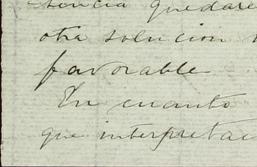 sencia quedare
otra solucion
favorable
En cuanto
que interpretac